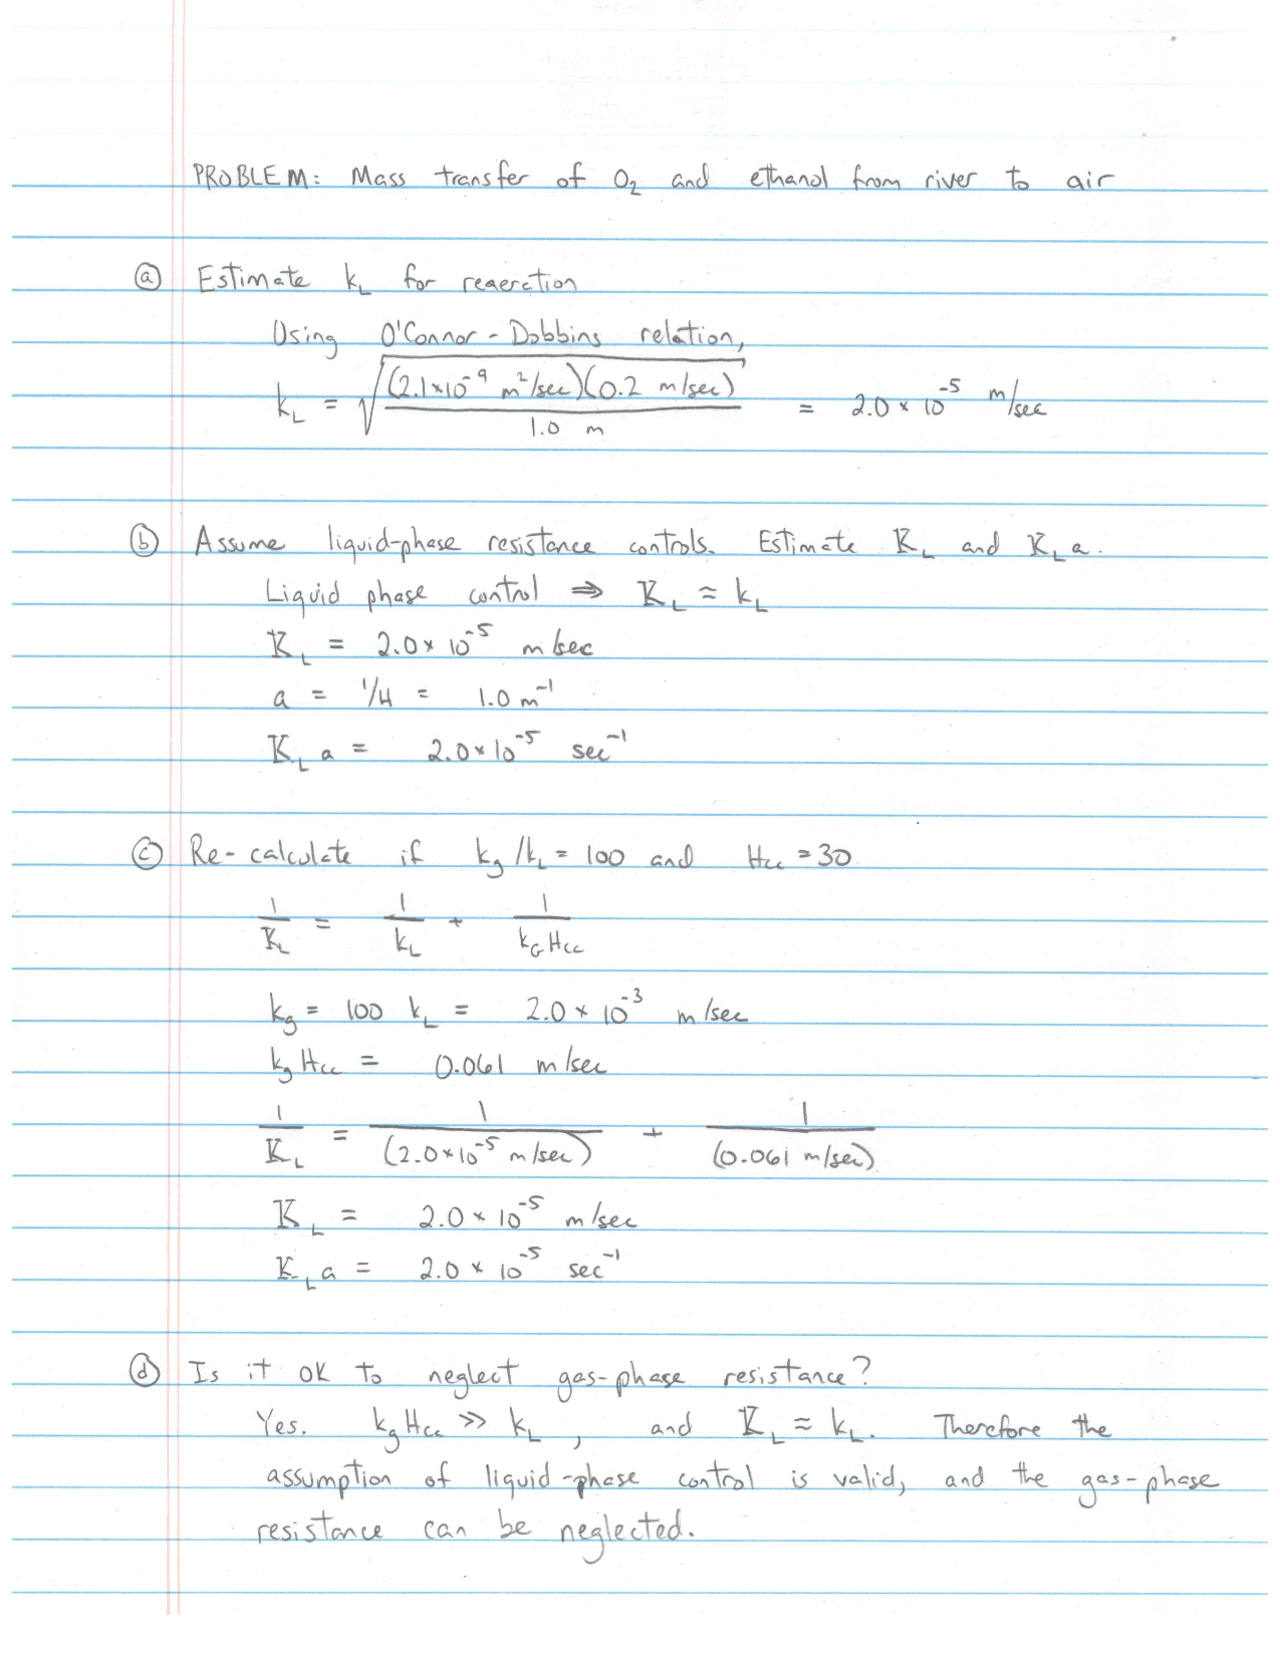 PROBLEM: Mass transfer of O₂ and ethanol from river to air
ⓐ Estimate k_L for reaeration
Using O'Connor-Dobbins relation,
k_L = √((2.1×10⁻⁹ m²/sec)(0.2 m/sec) / 1.0 m) = 2.0 × 10⁻⁵ m/sec
ⓑ Assume liquid-phase resistance controls. Estimate K_L and K_L a.
Liquid phase control ⇒ K_L ≈ k_L
K_L = 2.0 × 10⁻⁵ m/sec
a = 1/H = 1.0 m⁻¹
K_L a = 2.0 × 10⁻⁵ sec⁻¹
ⓒ Re-calculate if k_g/k_L = 100 and Hcc = 30
1/K_L = 1/k_L + 1/(k_G Hcc)
k_g = 100 k_L = 2.0 × 10⁻³ m/sec
k_g Hcc = 0.061 m/sec
1/K_L = 1/(2.0×10⁻⁵ m/sec) + 1/(0.061 m/sec)
K_L = 2.0 × 10⁻⁵ m/sec
K_L a = 2.0 × 10⁻⁵ sec⁻¹
ⓓ Is it ok to neglect gas-phase resistance?
Yes. k_g Hcc ≫ k_L, and K_L ≈ k_L. Therefore the
assumption of liquid-phase control is valid, and the gas-phase
resistance can be neglected.